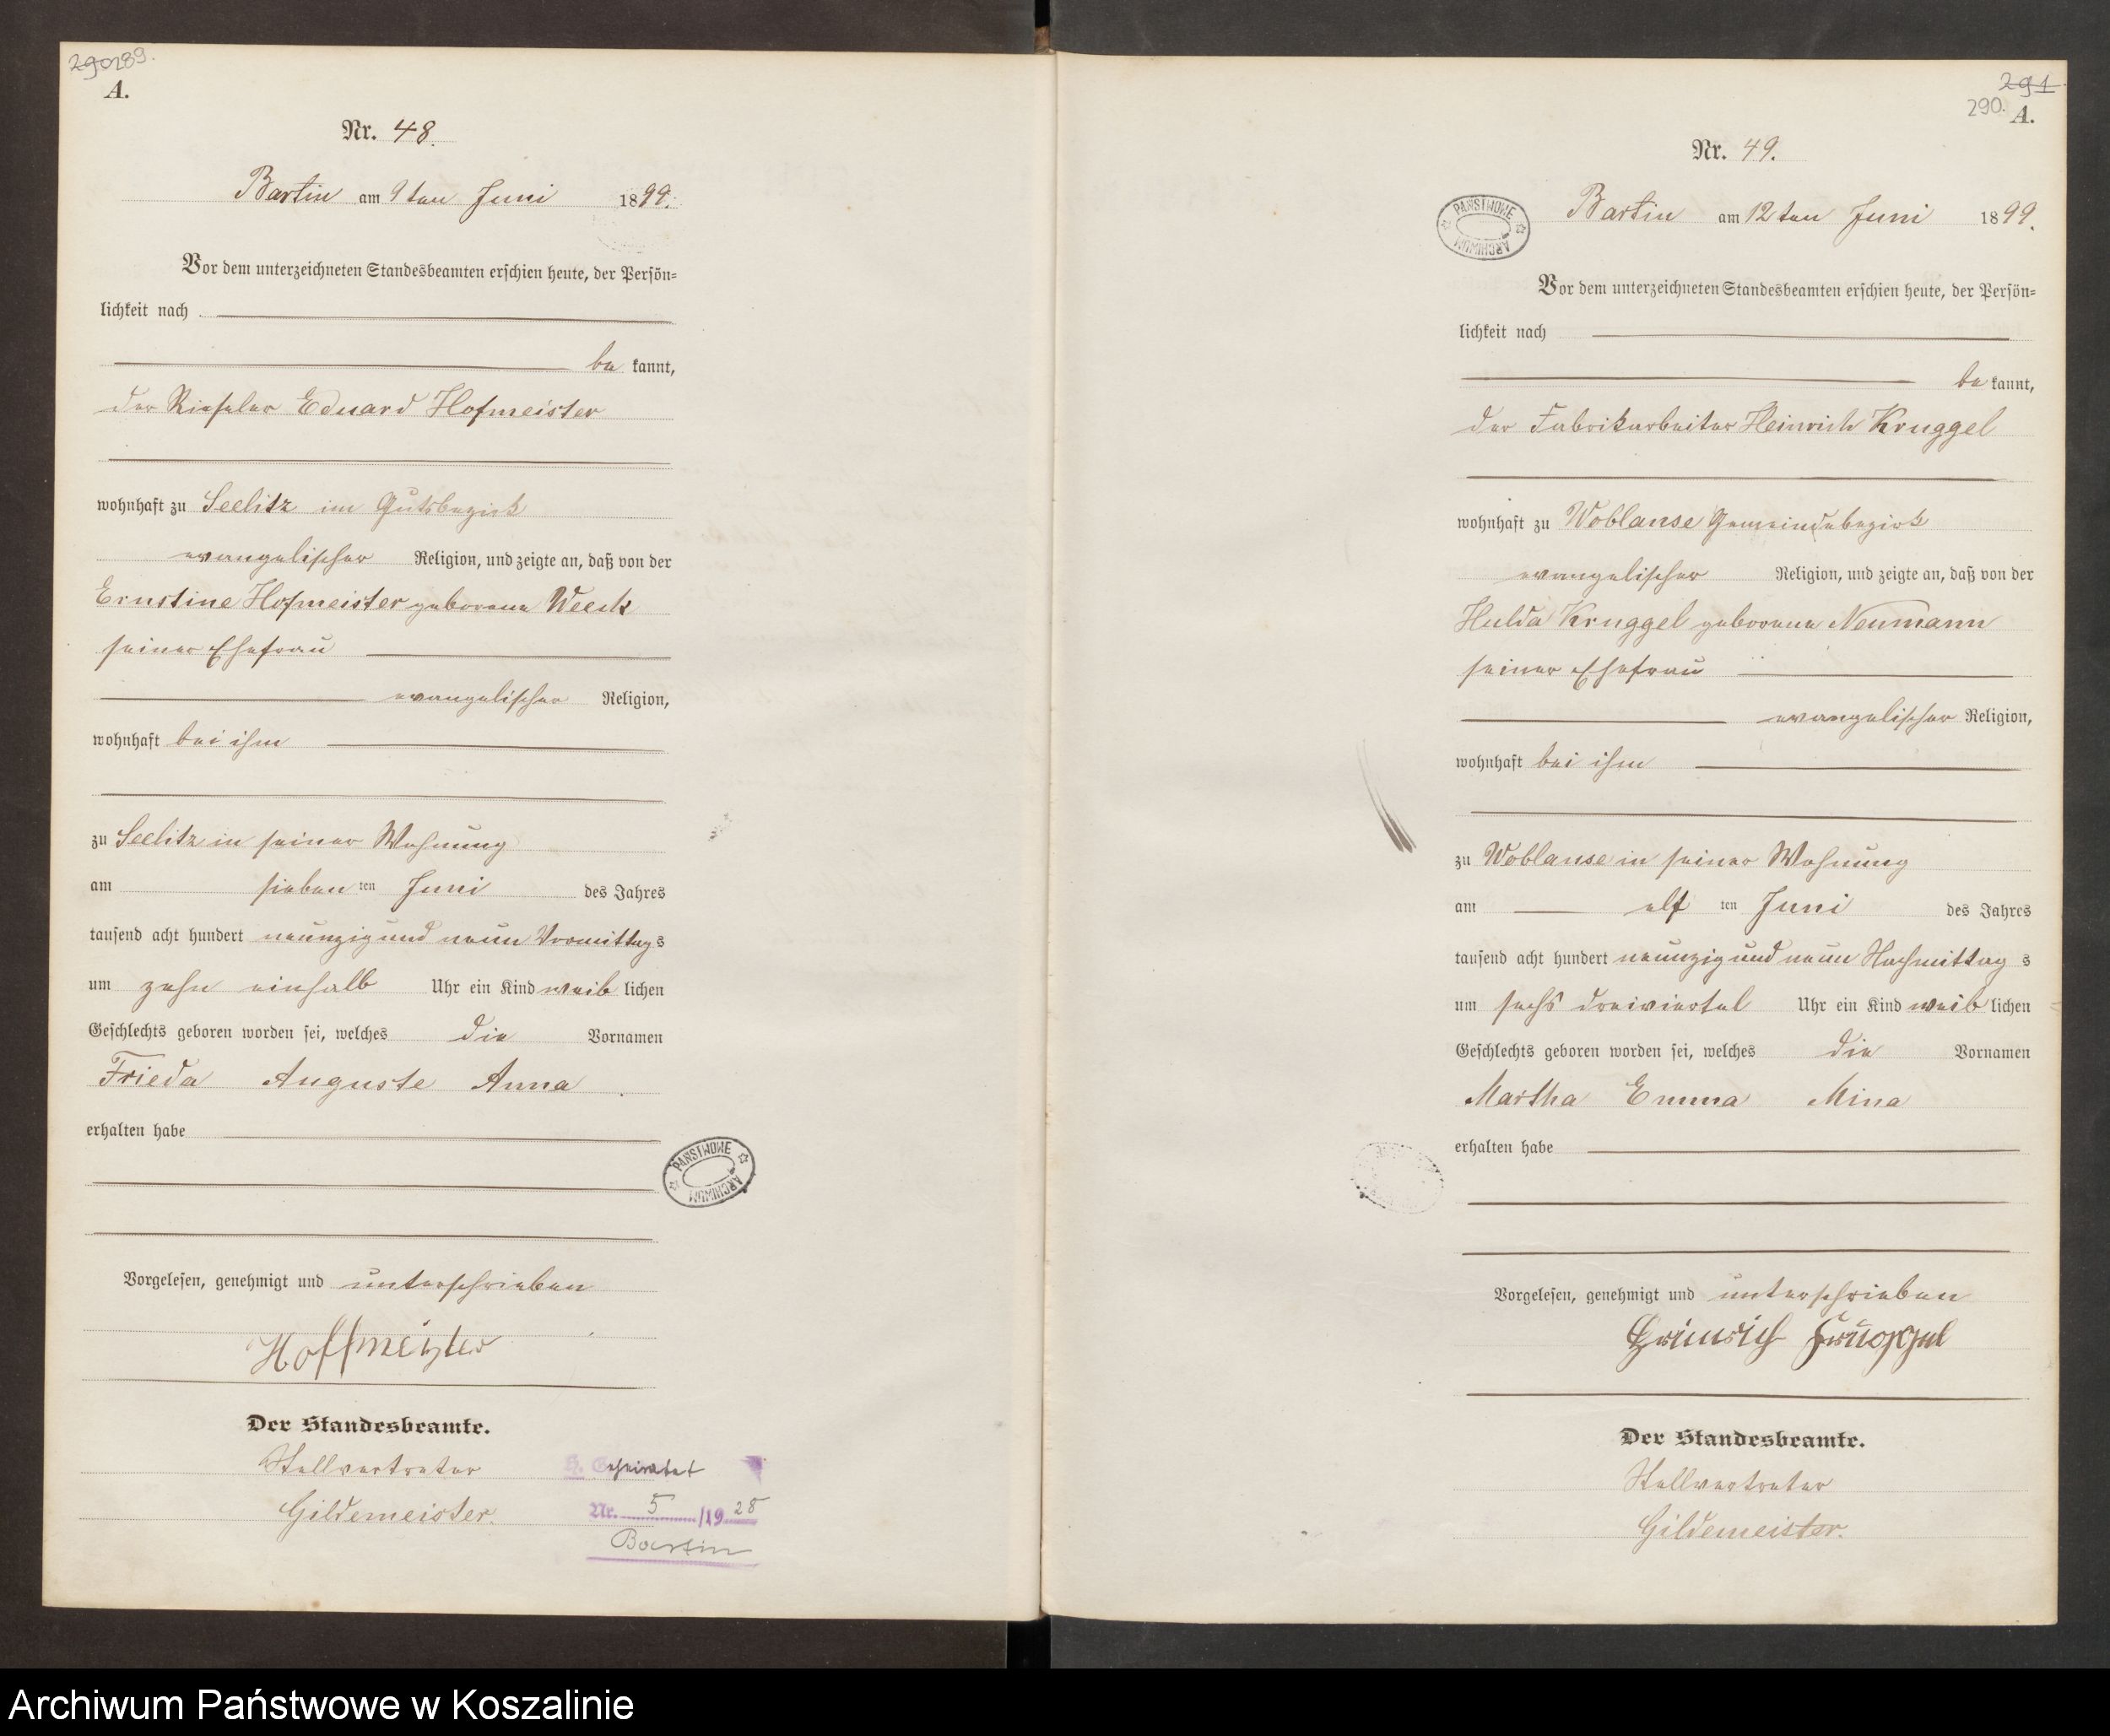 290 289.
A.
Nr. 48.
Bartin am 9ten Juni 1899.
Vor dem unterzeichneten Standesbeamten erschien heute, der Persön=
lichkeit nach
be kannt,
der Rieseler Eduard Hofmeister
wohnhaft zu Seelitz im Gutsbezirk
evangelischer Religion, und zeigte an, daß von der
Ernstine Hofmeister geborene Weeck
seiner Ehefrau
evangelischer Religion,
wohnhaft bei ihm
zu Seelitz in seiner Wohnung
am sieben ten Juni des Jahres
tausend acht hundert neunzig und neun Vormittag s
um zehn einhalb Uhr ein Kind weib lichen
Geschlechts geboren worden sei, welches die Vornamen
Frieda Auguste Anna
erhalten habe
PAŃSTWOWE ARCHIWUM
Vorgelesen, genehmigt und unterschrieben
Hoffmeister
Der Standesbeamte.
Stellvertreter
Gildemeister.
Geheiratet
Nr. 5 /19 28
Bartin
291
290. A.
Nr. 49.
PAŃSTWOWE ARCHIWUM
Bartin am 12ten Juni 1899.
Vor dem unterzeichneten Standesbeamten erschien heute, der Persön=
lichkeit nach
be kannt,
der Fabrikarbeiter Heinrich Kruggel
wohnhaft zu Woblanse Gemeindebezirk
evangelischer Religion, und zeigte an, daß von der
Hulda Kruggel geborene Neumann
seiner Ehefrau
evangelischer Religion,
wohnhaft bei ihm
zu Woblanse in seiner Wohnung
am elf ten Juni des Jahres
tausend acht hundert neunzig und neun Nachmittag s
um sechs dreiviertel Uhr ein Kind weib lichen
Geschlechts geboren worden sei, welches die Vornamen
Martha Emma Mina
erhalten habe
Vorgelesen, genehmigt und unterschrieben
Heinrich Kruggel
Der Standesbeamte.
Stellvertreter
Gildemeister.
Archiwum Państwowe w Koszalinie